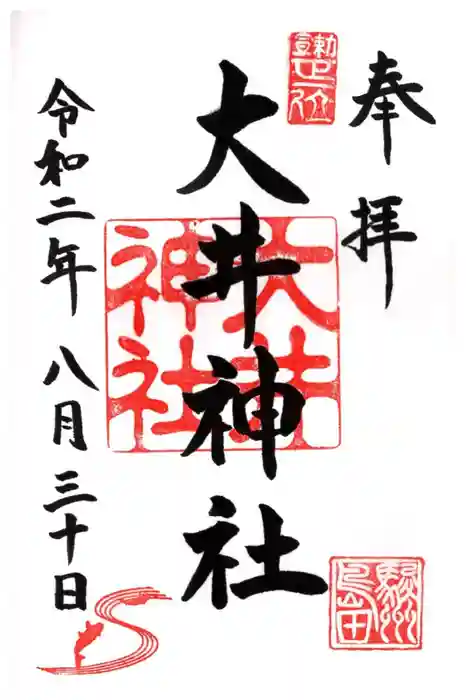 奉拝
大井神社
令和二年八月三十日
大井神社
駿州島田